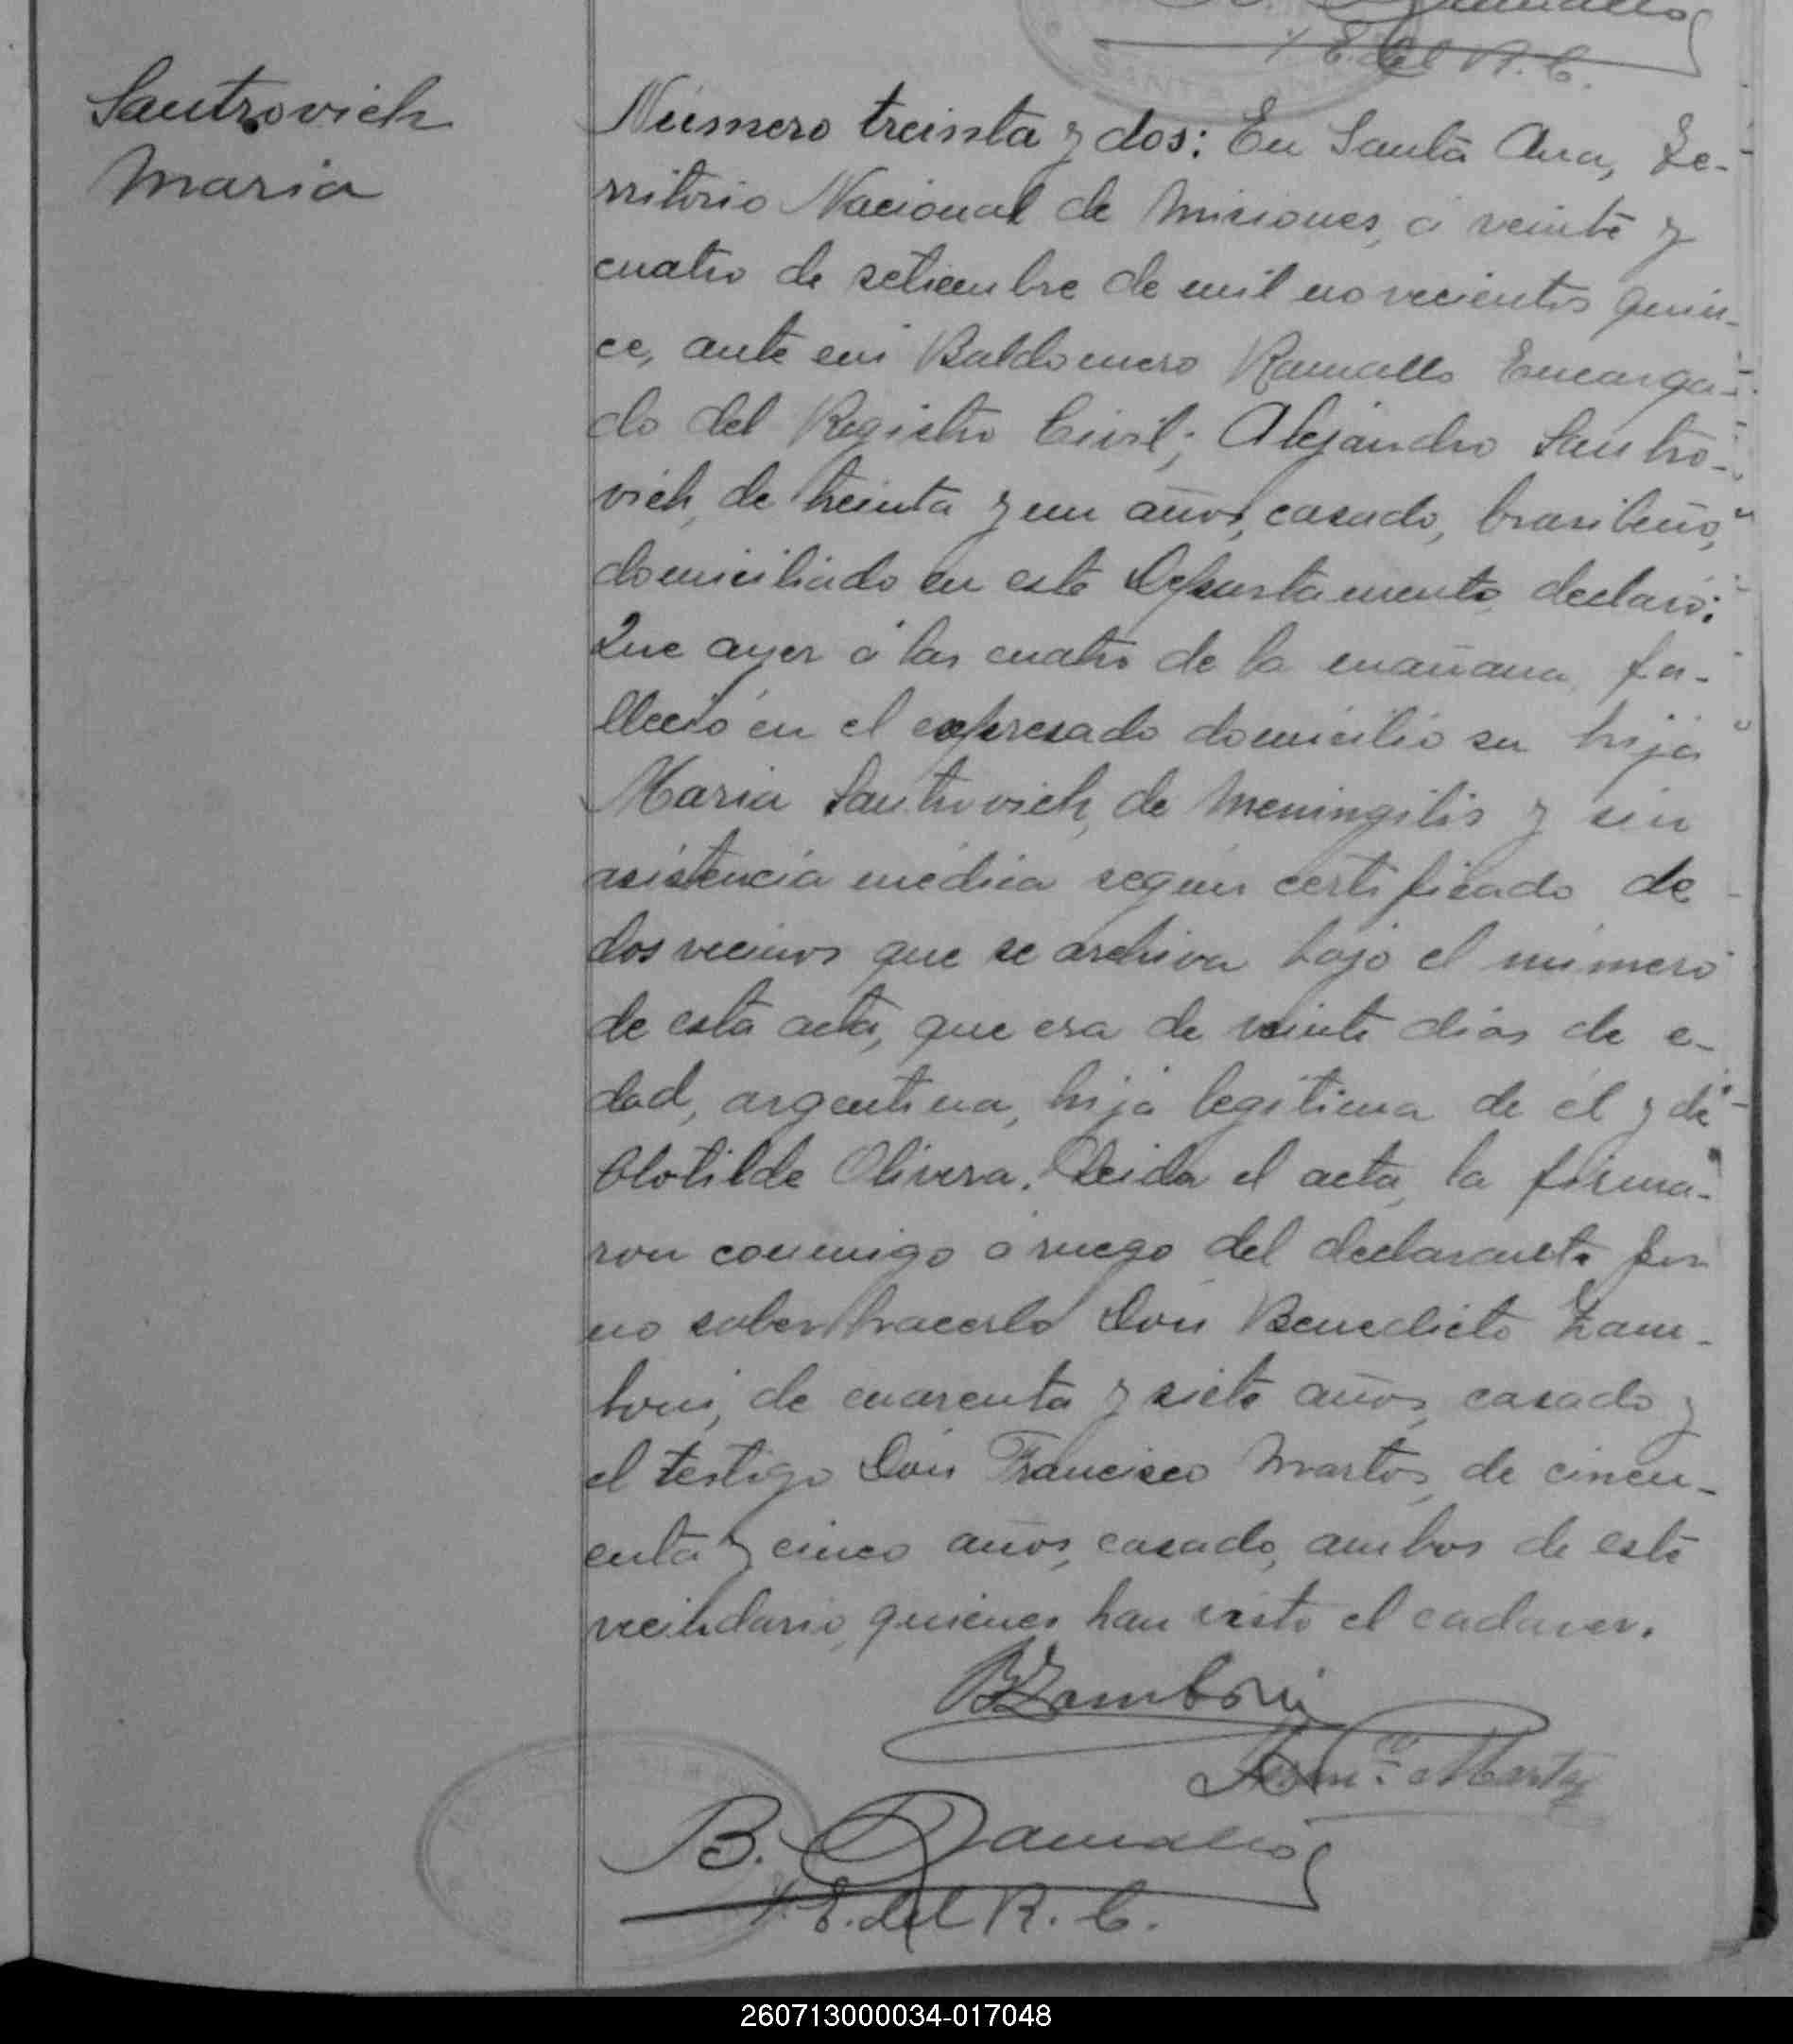 Ramallo
E. del R. C.
Sautrovich
Maria
Número treinta y dos: En Santa Ana, Te-
rritorio Nacional de Misiones, á veinte y
cuatro de setiembre de mil novecientos quin-
ce, ante mi Baldomero Ramallo Encarga-
do del Registro Civil; Alejandro Sautro-
vich, de treinta y un años, casado, brasileño,
domiciliado en este Departamento, declaró:
Que ayer á las cuatro de la mañana, fa-
lleció en el expresado domicilio su hija
Maria Sautrovich, de Meningitis y sin
asistencia médica según certificado de
dos vecinos que se archiva bajo el número
de esta acta, que era de veinte dias de e-
dad, argentina, hija legítima de él y de
Clotilde Olivera. Leida el acta, la firma-
ron conmigo á ruego del declarante por
no saber hacerlo Don Benedicto Zam-
boni, de cuarenta y siete años, casado y
el testigo Don Francisco Martos, de cincu-
enta y cinco años, casado, ambos de este
vecindario, quienes han visto el cadaver.
BZamboni
Martos
B. Ramallo
E. del R. C.
260713000034-017048